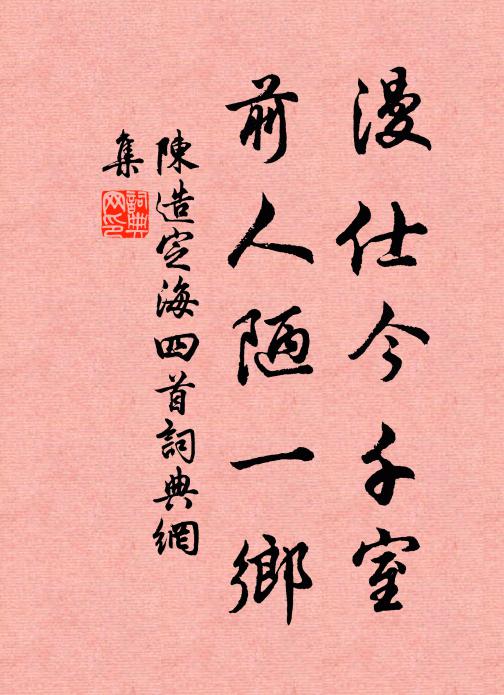 漫仕今千室
前人陋一鄉
陳造定海四首詞典網
集
詞典
网印